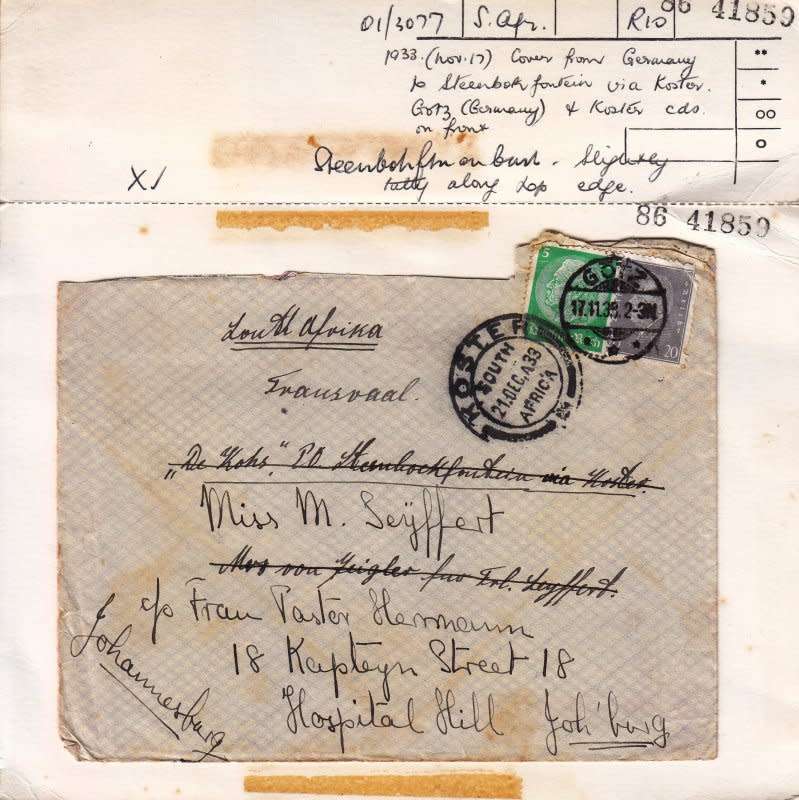 01/3077 S. Afr. R10 86 41859
1933. (Nov. 17) Cover from Germany **
to Steenbokfontein via Koster. *
Gotz (Germany) & Koster cds. oo
on front o
Steenbokftn on back. Slightly
X/ tatty along top edge.
86 41859
5 GÖTZ
17.11.33. 2-3N
20
KOSTER
SOUTH
21.DEC.A33
AFRICA
South Afrika
Transvaal.
„De Koks." P.O. Steenbockfontein via Koster.
Miss M. Seÿffert
Mrs von Zeigler für Frl. Seyffert.
c/o Frau Paster Hermann
18 Kapteyn Street 18
Hospital Hill Joh'burg
Johannesburg